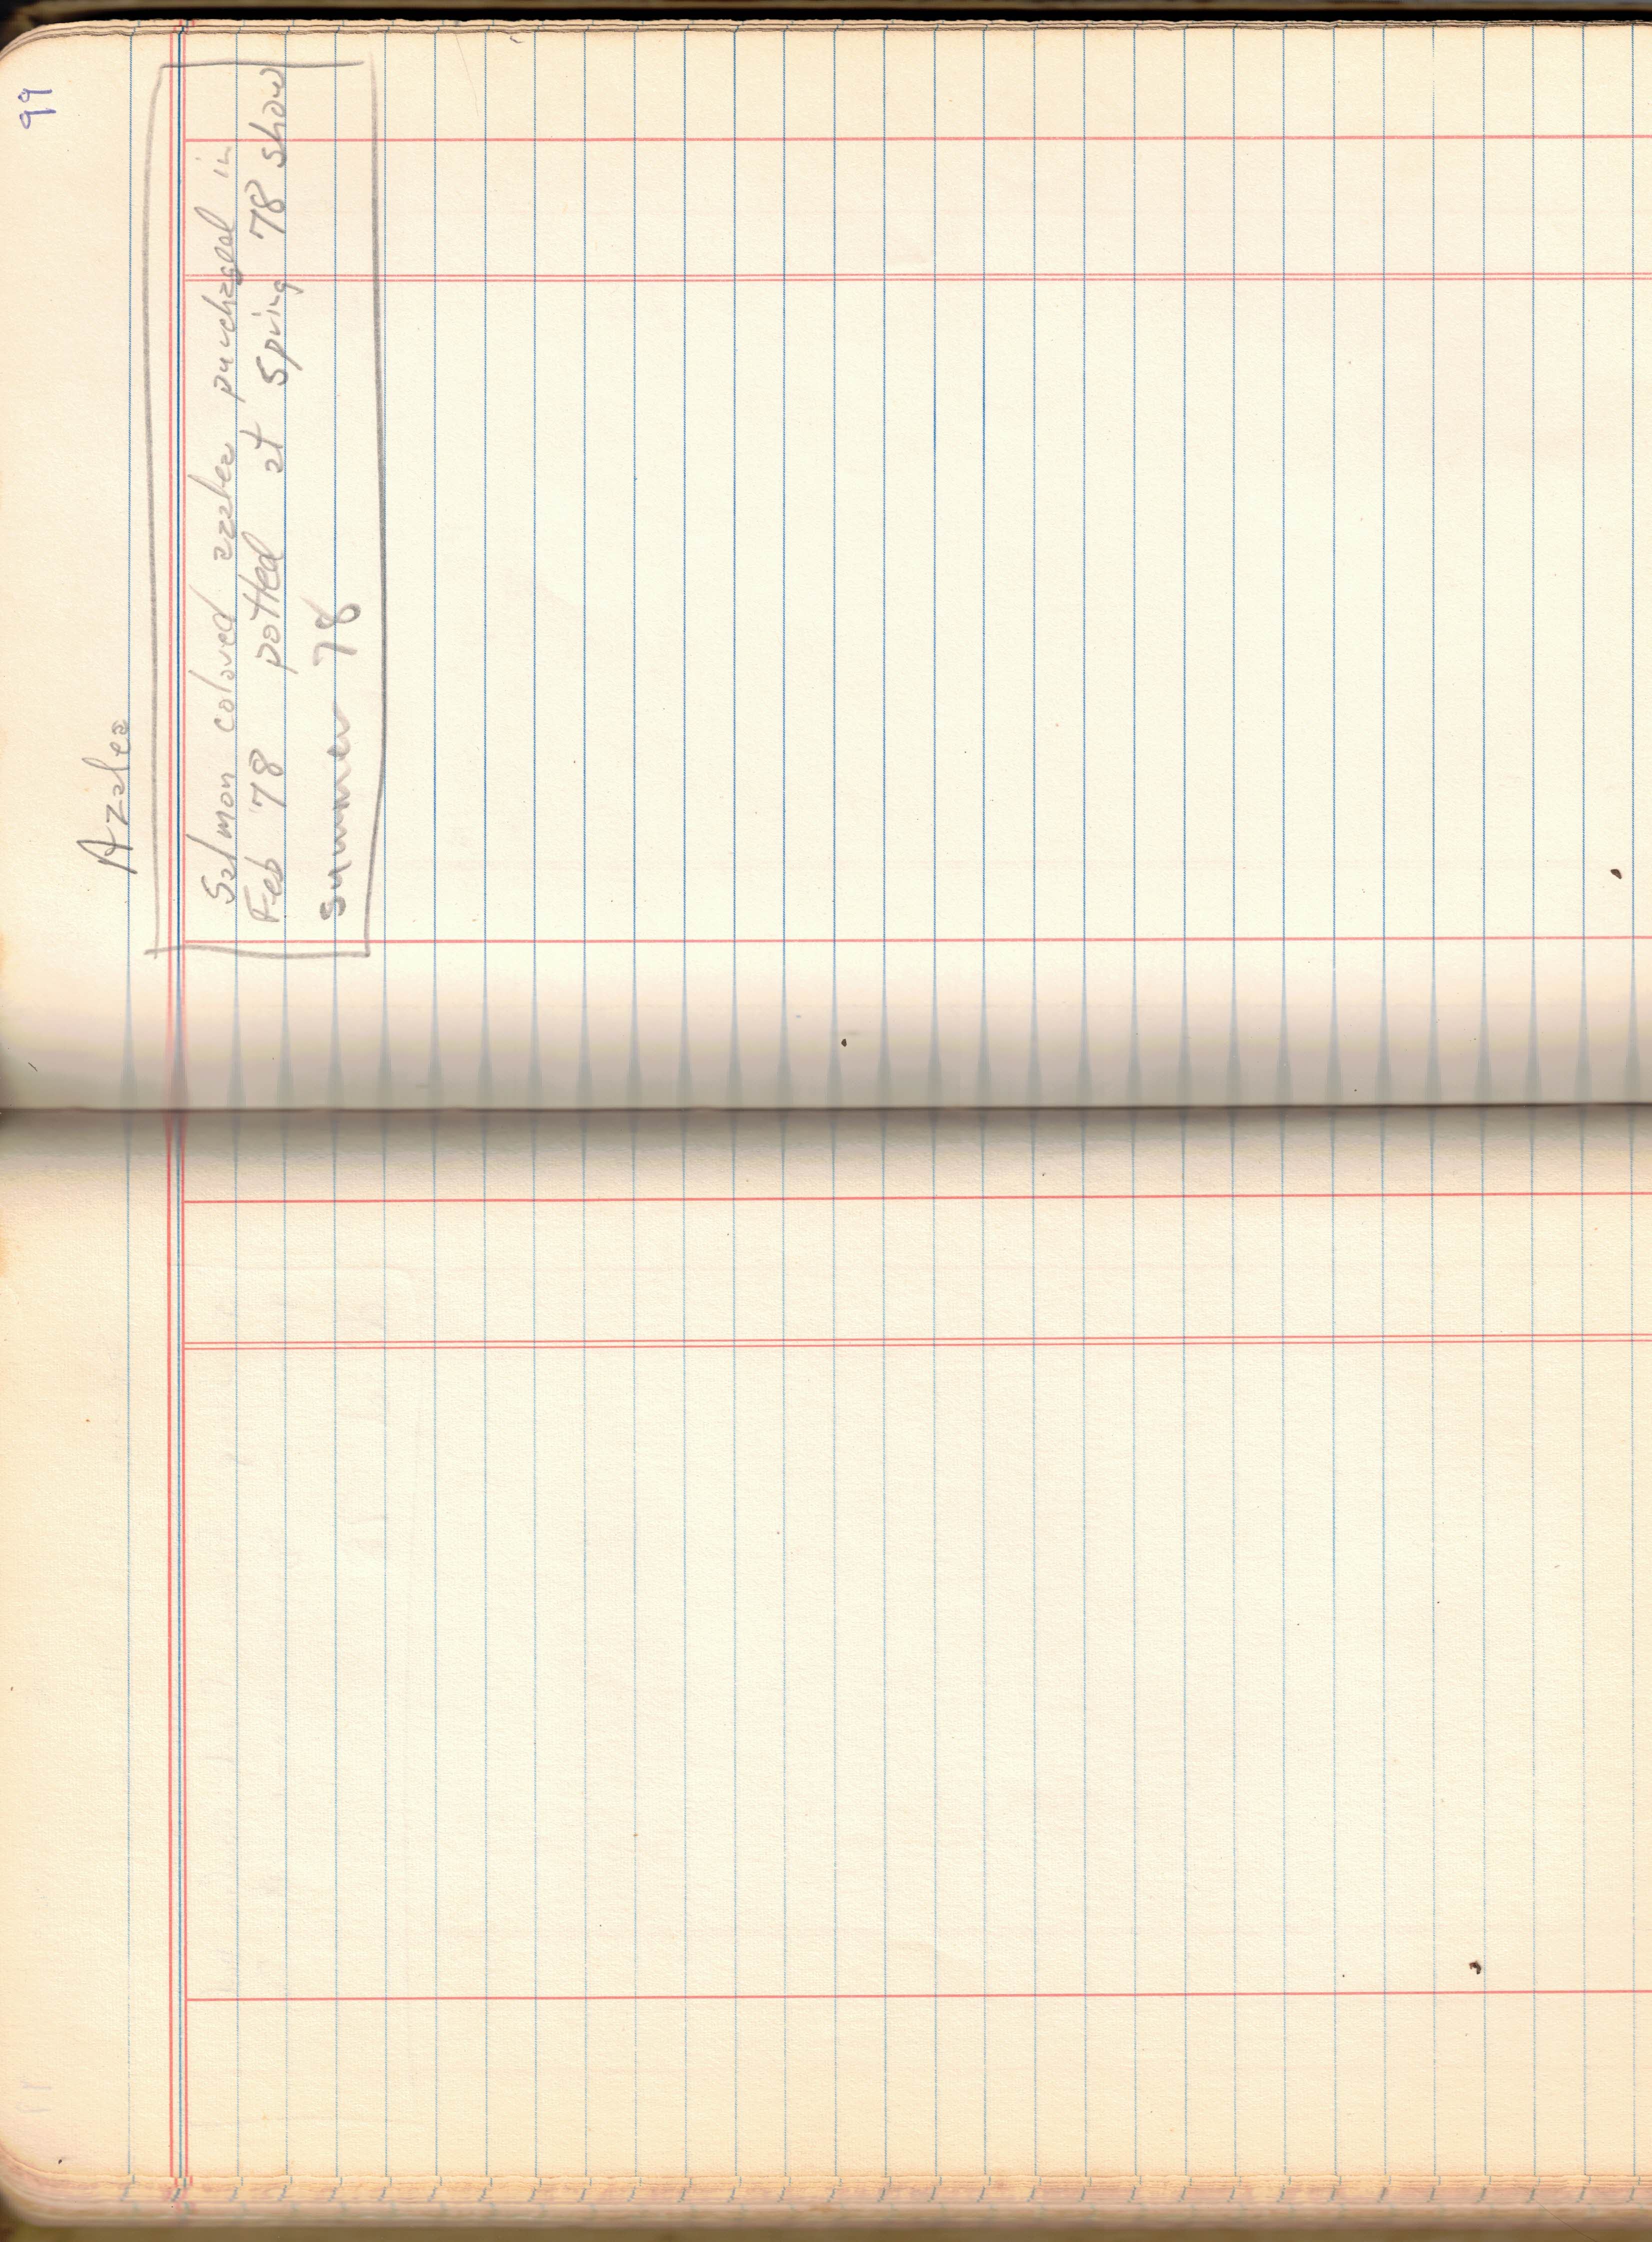 99
Azalea
Salmon colored azalea purchased in
Feb '78 potted at Spring 78 show
Summer 78